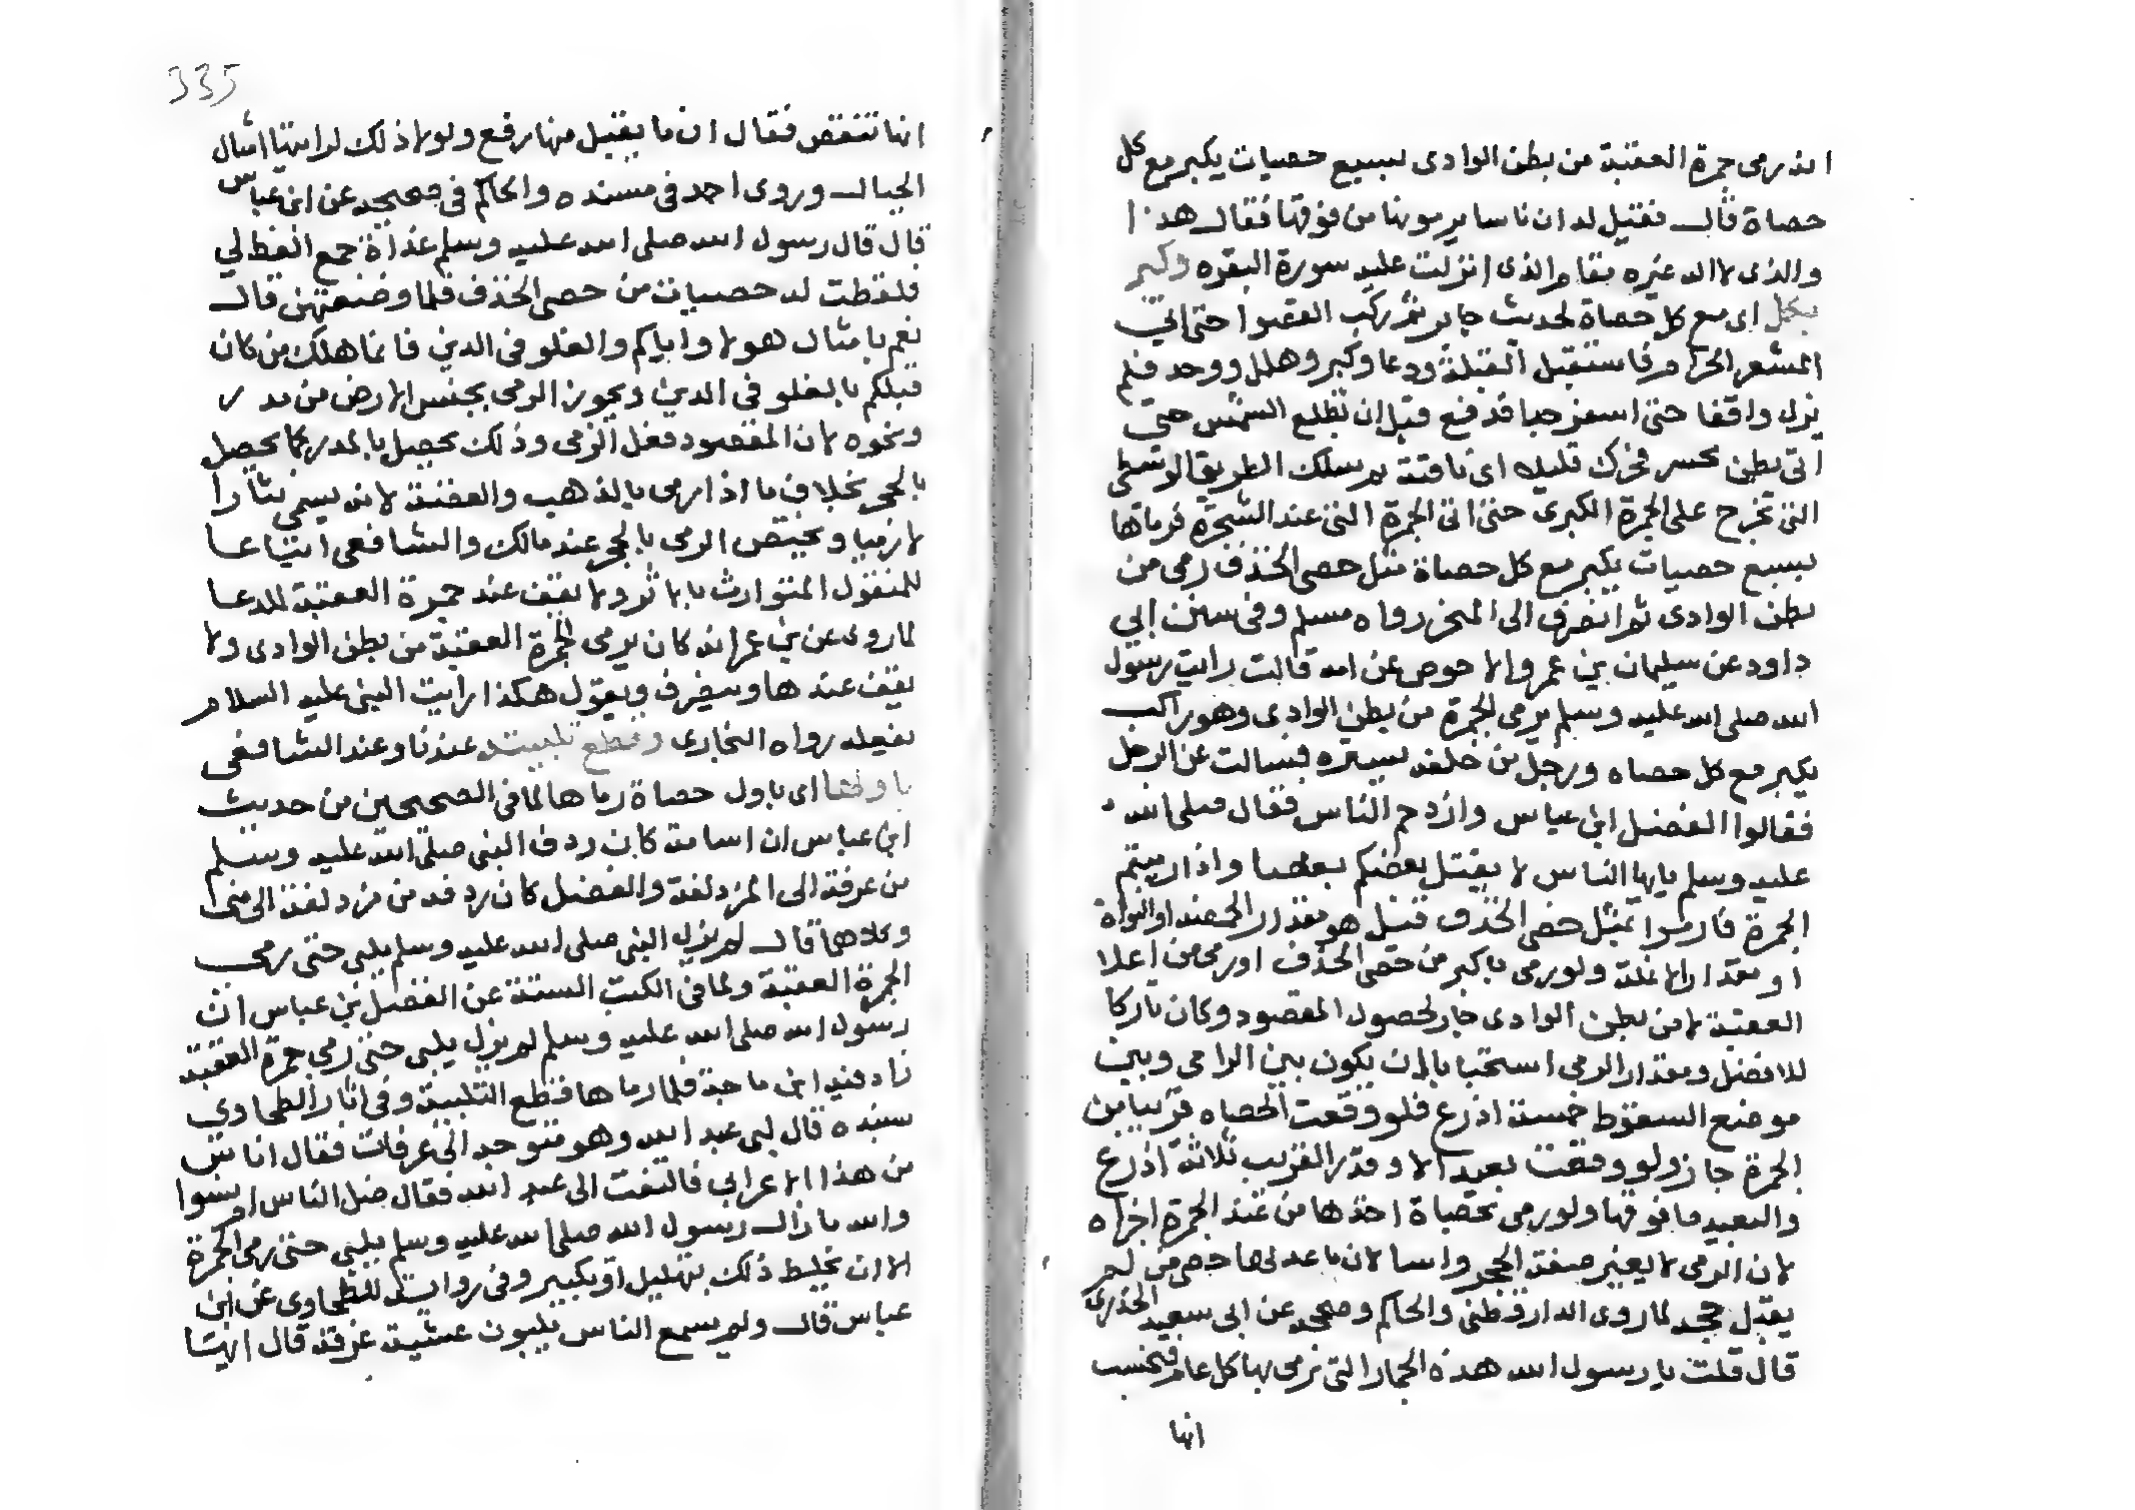 انه رمى جمرة العقبة من بطن الوادى بسبع حصيات يكبر مع كل
حصاة قال فقيل له ان ناسا يرمونها من فوقها فقال هذا
والذى لا اله غيره مقام الذى انزلت عليه سورة البقره وكبر
بكل اى مع كل حصاة لحديث جابر ثم ركب القصوا حتى اتى
المشعر الحرام فاستقبل القبلة ودعا وكبر وهلل ووحد فلم
يزل واقفا حتى اسفر جدا فدفع قبل ان تطلع الشمس حتى
اتى بطن محسر فحرك قليلا اى ناقته ثم سلك الطريق الوسطى
التى تخرج على الجمرة الكبرى حتى اتى الجمرة التى عند الشجرة فرماها
بسبع حصيات يكبر مع كل حصاة مثل حصى الخذف رمى من
بطن الوادى ثم انصرف الى المنحر رواه مسلم وفى سنن ابي
داود عن سليمان بن عمرو الاحوص عن امه قالت رايت رسول
الله صلى الله عليه وسلم يرمى الجمرة من بطن الوادى وهو راكب
يكبر مع كل حصاه ورجل من خلفه يستره فسالت عن الرجل
فقالوا الفضل ابن عباس وازدحم الناس فقال صلى الله
عليه وسلم يايها الناس لا يقتل بعضكم بعضا واذا رميتم
الجمرة فارموا بمثل حصى الخذف قيل هو مقدار الحمصة او النواة
او مقدار الانملة ولو رمى باكبر من حصى الخذف او رمى من اعلا
العقبة لا من بطن الوادى جاز لحصول المقصود وكان تاركا
للافضل ومقدار الرمى استحبابا ان يكون بين الرامى وبين
موضع السقوط خمسة اذرع فلو وقعت الحصاه قريبا من
الجمرة جاز ولو وقعت بعيدا لا وقدر القريب ثلاثة اذرع
والبعيد ما فوقها ولو رمى بحصاة اخذها من عند الجمرة اجزاه
لان الرمى لا يغير صفة الحجر واسا لان ما عدلها حصى من لم
يقبل حجه لما روى الدارقطنى والحاكم وصححه عن ابى سعيد الخدرى
قال قلت يا رسول الله هذه الجمار التى نرمى بها كل عام فنحسب
انها
335
انها تنقص فقال ان ما يقبل منها رفع ولولا ذلك لرايتها امثال
الجبال وروى احمد فى مسنده والحاكم فى صحيحه عن ابن عباس
قال قال رسول الله صلى الله عليه وسلم غداة جمع القط لي
فلقطت له حصيات من حصى الخذف فلما وضعتهن قال
نعم بامثال هولا واياكم والغلو فى الدين فانما هلك من كان
قبلكم بالغلو فى الدين ويجوز الرمى بجنس الارض من مدر
ونحوه لان المقصود فعل الرمى وذلك يحصل بالمدر كما يحصل
بالحجر بخلاف ما اذا رمى بالذهب والفضة لانه يسمى نثارا
لا رميا ويختص الرمى بالحجر عند مالك والشافعى اتباعا
للمنقول المتوارث بالماثور ولا يقف عند جمرة العقبة للدعا
لما روى عن بن عمر انه كان يرمى الجمرة العقبة من بطن الوادى ولا
يقف عندها وينصرف ويقول هكذا رايت النبى عليه السلام
يفعله رواه البخارى وقطع تلبيته عندنا وعند الشافعى
باولها اى باول حصاة رماها لما فى الصحيحين من حديث
ابن عباس ان اسامة كان ردف النبى صلى الله عليه وسلم
من عرفة الى المزدلفة والفضل كان ردفه من مزدلفة الى منى
وكلاهما قال لم يزل النبى صلى الله عليه وسلم يلبى حتى رمى
الجمرة العقبة ولما فى الكتب الستة عن الفضل بن عباس ان
رسول الله صلى الله عليه وسلم لم يزل يلبى حتى رمى جمرة العقبة
زاد فيه ابن ماجة فلما رماها قطع التلبية وفى اثار الطحاوى
بسنده قال لبى عبد الله وهو متوجه الى عرفات فقال اناس
من هذا الاعرابى فالتفت الى عبد الله فقال ضل الناس ام نسوا
والله ما زال رسول الله صلى الله عليه وسلم يلبى حتى رمى الجمرة
الا ان يخلط ذلك بتهليل او تكبير وفى رواية للطحاوى عن ابن
عباس قال ولم يسمع الناس يلبون عشية عرفة قال ايها